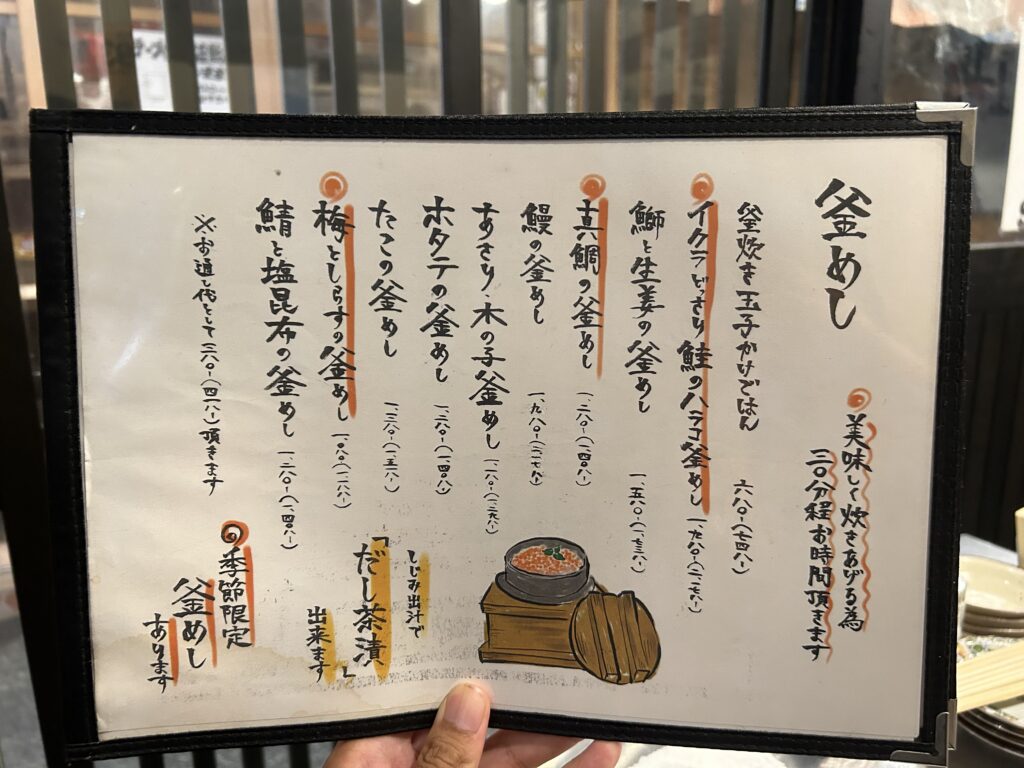 釜めし
美味しく炊きあげる為
三〇分程お時間頂きます
釜炊き玉子かけごはん 六八〇-(七四八-)
イクラどさり鮭のハラコ釜めし 一、九八〇-(二、一七八-)
鰤と生姜の釜めし 一、五八〇-(一、七三八-)
真鯛の釜めし 一、二八〇-(一、四〇八-)
鰻の釜めし 一、九八〇-(二、一七八-)
あさり、木の子釜めし 一、一八〇-(一、二九八-)
ホタテの釜めし 一、二八〇-(一、四〇八-)
たこの釜めし 一、三八〇-(一、五一八-)
梅としらすの釜めし 一、〇八〇-(一、一八八-)
鯖と塩昆布の釜めし 一、二八〇-(一、四〇八-)
※お通し代として三八〇-(四一八-)頂きます
しじみ出汁で
「だし茶漬」
出来ます
季節限定
釜めし
あります